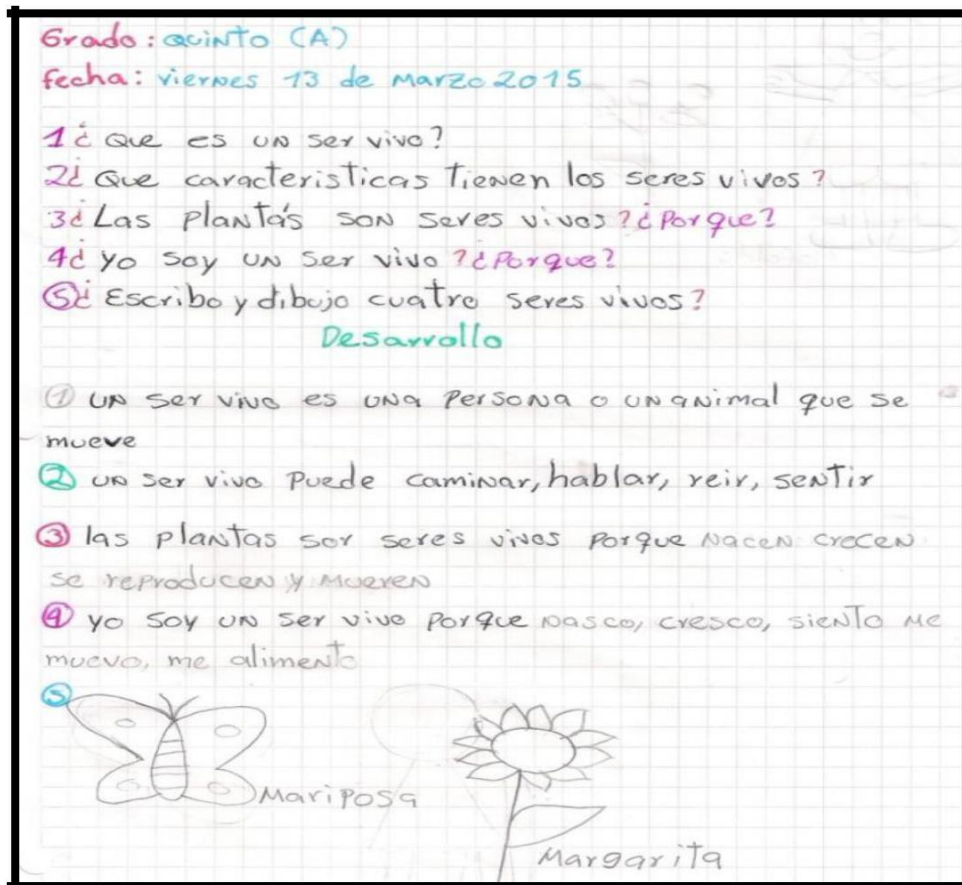 Grado: Quinto (A)
fecha: viernes 13 de Marzo 2015
1¿ Que es un ser vivo?
2¿ Que caracteristicas Tienen los seres vivos?
3¿ Las Planta's son seres vivos? ¿Porque?
4¿ yo soy un ser vivo? ¿Porque?
5¿ Escribo y dibujo cuatro seres vivos?
Desarrollo
1 un ser vivo es una Persona o un animal que se
mueve
2 un ser vivo Puede caminar, hablar, reir, senTir
3 las PlanTas sor seres vivos Porque Nacen crecen
se reproducen y mueren
4 yo soy un ser vivo Porque nasco, cresco, sienTo me
muevo, me alimento
5
MariPosa
Margarita